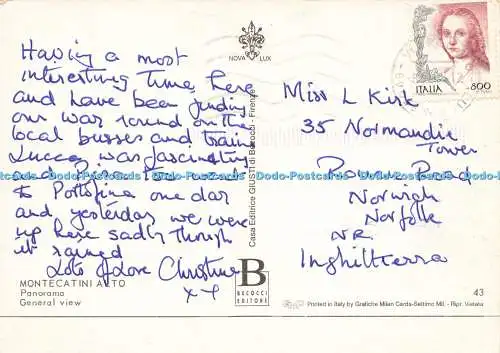 Having a most
interesting time here
and have been finding
our way round on the
local busses and train
Lucca was fascinating
and Pisa too went
to Portofino one day
and yesterday we were
up here sadly though
it rained
Lots of Love Christine
x x
MONTECATINI ALTO
Panorama
General view
NOVA LUX
Casa Editrice GIUSTI di Becocci - Firenze
B
BECOCCI
EDITORE
ITALIA 800
Miss L Kirk
35 Normandie
Tower
Rouen Road
Norwich
Norfolk
NR
Inghilterra
43
Printed in Italy by Grafiche Milan Cards-Settimo Mil. - Ripr. Vietata
Postcards-Postcards.com